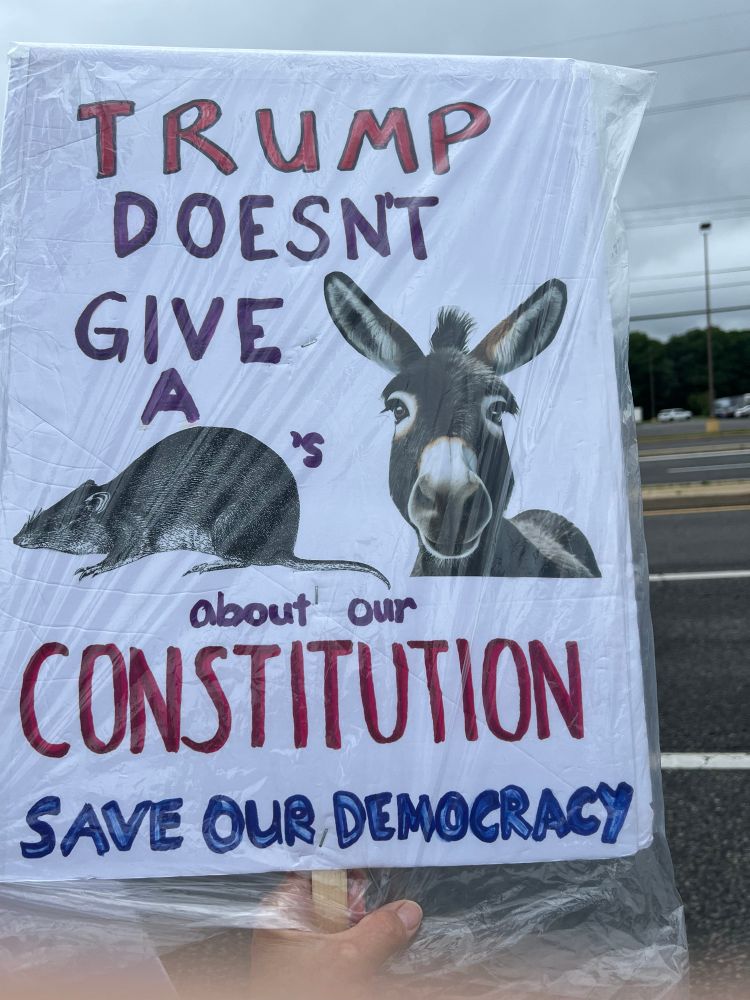 TRUMP
DOESN'T
GIVE
A
's
about our
CONSTITUTION
SAVE OUR DEMOCRACY